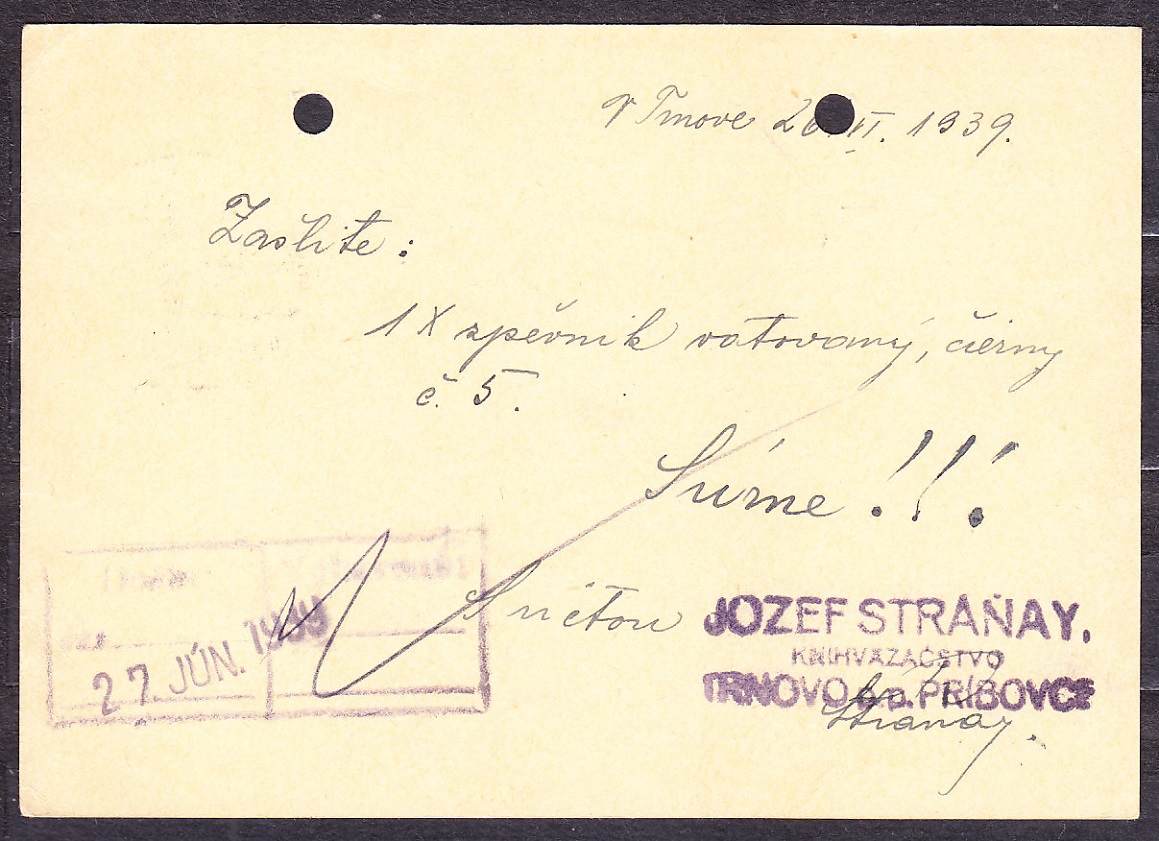 V Trnove 26. VI. 1939.
Zašlite:
1 X zpěvník vatovaný, čierny
č. 5.
Súrne!!!
S úctou
JOZEF STRAŇAY.
KNIHVÄZAČSTVO
TRNOVO p.p. PRÍBOVCE
Straňay.
27. JÚN. 1939